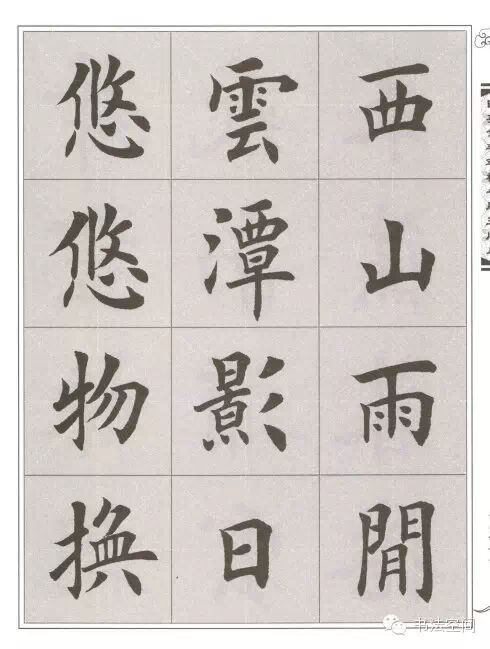 西山雨閒
雲潭影日
悠悠物换
书法空间